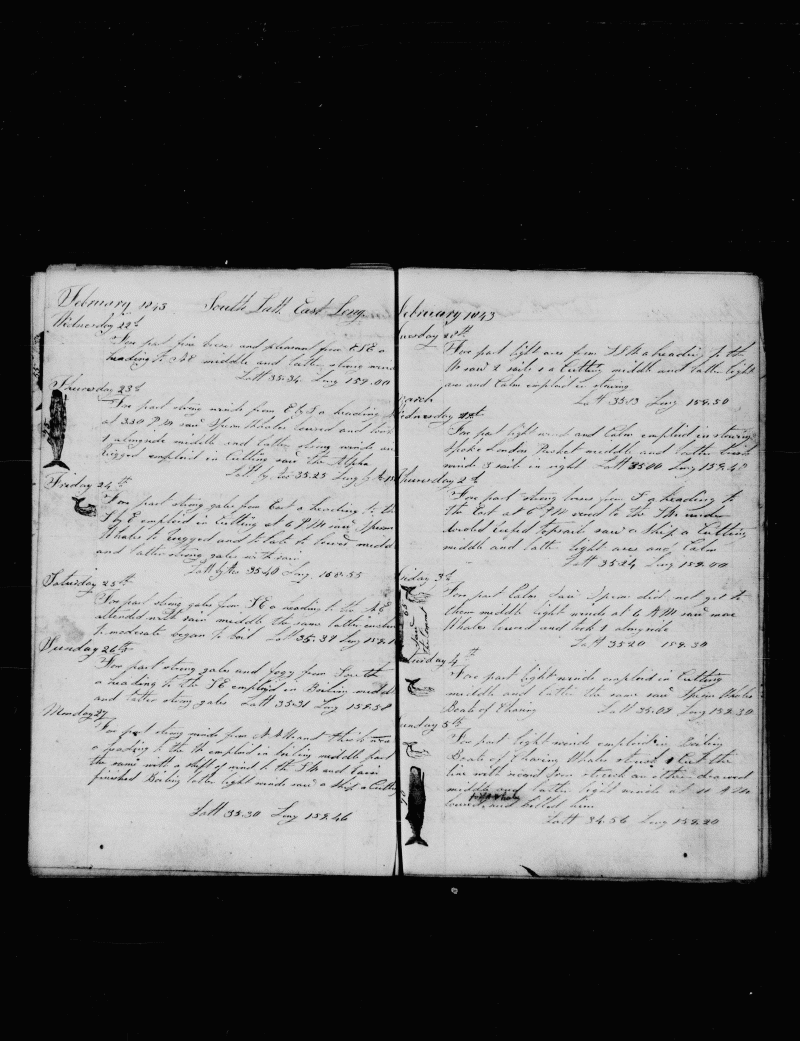 February 1843 South Latt. East Long.
Wednesday 22d
Fore part fine breese and pleasant from ESE a
heading to NE middle and latter strong wind
Latt 35.34 Long 159.00
Thursday 23d
Fore part strong winds from a heading
at 3.30 P.M saw Sperm Whales lowered and took
1 alongside middle and latter strong winds an
rugged employed in Cutting saw the Alpha
Latt by 35.23 Long by
Friday 24th
Fore part strong gales from East a heading to the
employd in Cutting at 6 P M saw Sperm
Whales to rugged and to late to lower middl
and latter strong gales with rain
Latt by 35.40 Long 158.55
Saturday 25th
Fore part strong gales from SE a heading to the NE
attended with rain middle the same latter
moderate began to boil Latt 35.39 Long
Sunday 26th
Fore part strong gales and fogy from South
a heading to the SE employd in Boiling middle
and latter strong gales Latt 35.31 Long 158.58
Monday 27
Fore part strong winds from and thick
a heading to the employd in boiling middle part
the same with a shift of wind to the SW and
finished Boiling latter light winds saw a Ship a Cutting
Latt 35.30 Long 159.46
February 1843
uesday 28th
Fore part light ares from a heading to the
W saw 2 sails 1 a Cutting middle and latter light
ares and Calm employd in stowing
Latt 35.13 Long 159.50
March
Wednesday
Fore part light wind and Calm employd in stowing
spoke London Packet middle and latter
winds 3 sails in sight Latt 35.00 Long
Thursday 2d
Fore part strong breese from a heading to
the East at 6 P M wind to the SW under
Double reefed topsails saw a Ship a Cutting
middle and latter light ares and Calm
Latt 35.24 Long 159.00
Friday 3d
Fore part Calm saw Sperm did not get to
them middle light winds at 6 A M saw more
Whales lowered and took 1 alongside
Latt 35.20 159.30
aturday 4th
Fore part light winds employd in Cutting
middle and latter the same saw Sperm Whales
Boats of Chasing Latt 35.09 Long 159.30
unday 5th
Fore part light winds employd in Boiling
Boats of Chasing Whales struck 1 Cut the
line with from struck an other drawed
middle and latter light winds at 11 A M
lowered and killed him
Latt 34.56 Long 159.20